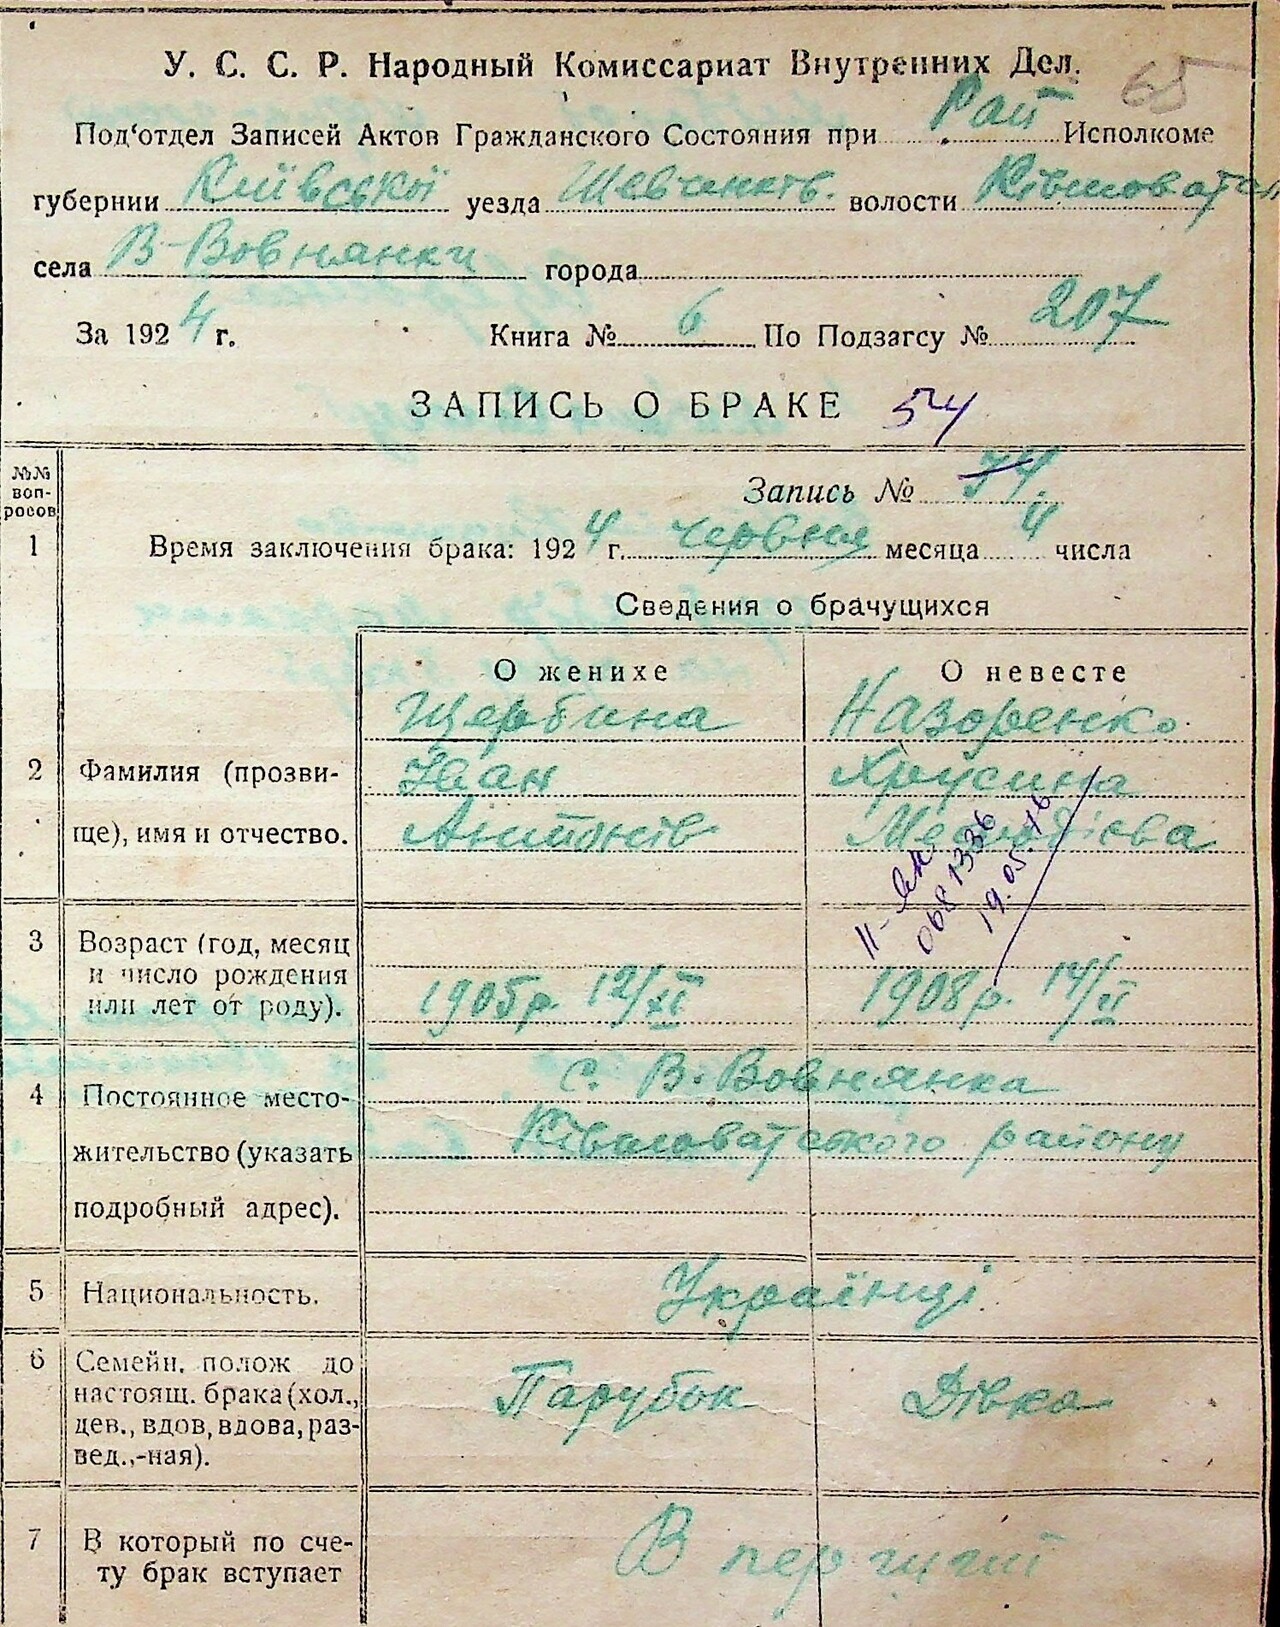 У. С. С. Р. Народный Комиссариат Внутренних Дел.
65
Под'отдел Записей Актов Гражданского Состояния при Рай Исполкоме
губернии Київської уезда Шевченків. волости Ківшоват
села В-Вовнянки города
За 1924 г. Книга № 6 По Подзагсу № 207
ЗАПИСЬ О БРАКЕ 54
№№ вопросов
Запись № 74.
1 Время заключения брака: 1924 г. червня месяца 4 числа
Сведения о брачущихся
О женихе О невесте
Щербина Назоренко
2 Фамилия (прозви- Іван Хрусина
ще), имя и отчество. Антонів
11-
0681336
19.05.76
3 Возраст (год, месяц
и число рождения
или лет от роду). 1905р. 12/XI 1908р. 14/II
4 Постоянное место- с. В. Вовнянка
жительство (указать Ківшоватського району
подробный адрес).
5 Национальность. Українці.
6 Семейн. полож до
настоящ. брака (хол., Парубок Дівка
дев., вдов, вдова, раз-
вед.,-ная).
7 В который по сче- В перший
ту брак вступает